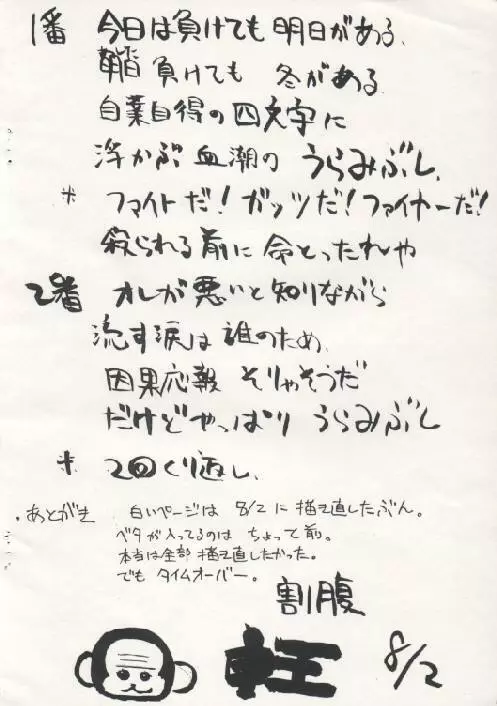 1番 今日は負けても明日がある、
鞜負けても 冬がある
自業自得の四文字に
浮かぶ血潮の うらみぶし、
* ファイトだ!ガッツだ!ファイヤーだ!
殺られる前に命とったれや
2番 オレが悪いと知りながら
流す涙は誰のため、
因果応報 そりゃそうだ
だけどやっぱり うらみぶし
* 2回くり返し、
・あとがき 白いページは 8/2に描き直したぶん。
ベタが入ってるのは ちょって前。
本当は全部描き直したかった。
でも タイムオーバー。
割腹
8/2